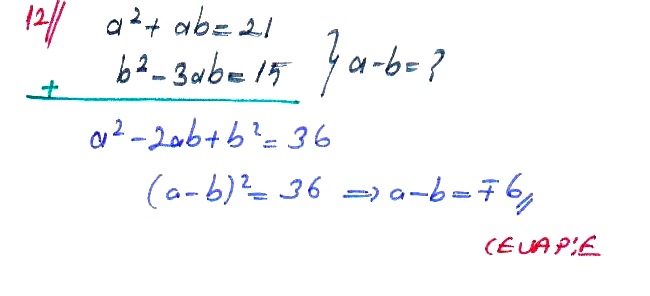 12// a² + ab = 21
b² - 3ab = 15 } a-b = ?
+
a² - 2ab + b² = 36
(a-b)² = 36 ⇒ a-b = ∓6//
CEVAP:E